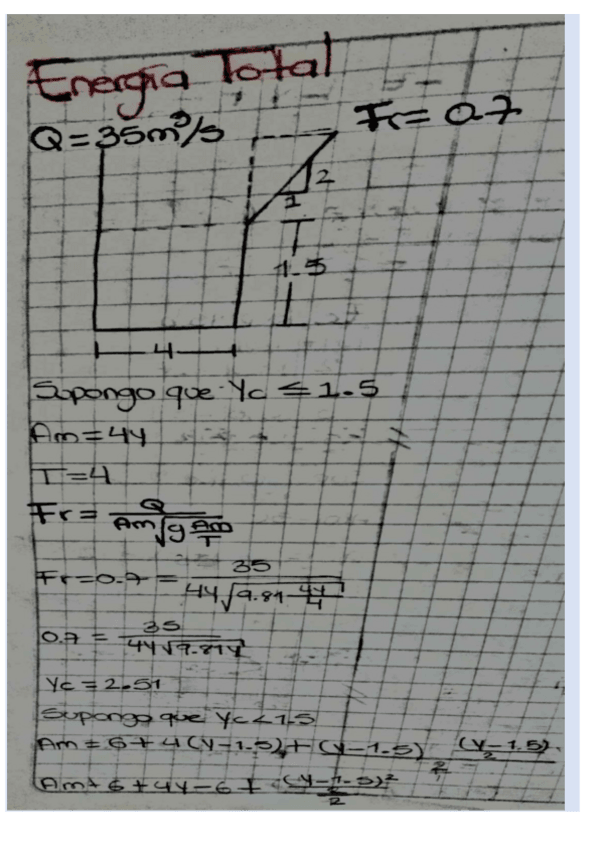 Energía Total
Q = 35m³/s
Fr = 0.7
2
1
1.5
4
Supongo que Yc ≤ 1.5
Am = 4y
T = 4
Fr = Q / Am√(g Am/T)
Fr = 0.7 = 35 / 4y√(9.81 4y/4)
0.7 = 35 / 4y√(9.81y)
Yc = 2.51
Supongo que Yc < 1.5
Am = 6 + 4(y-1.5) + (y-1.5) (y-1.5)/2 / 2
Am + 6 + 4y - 6 + (y-1.5)²/2 / 2